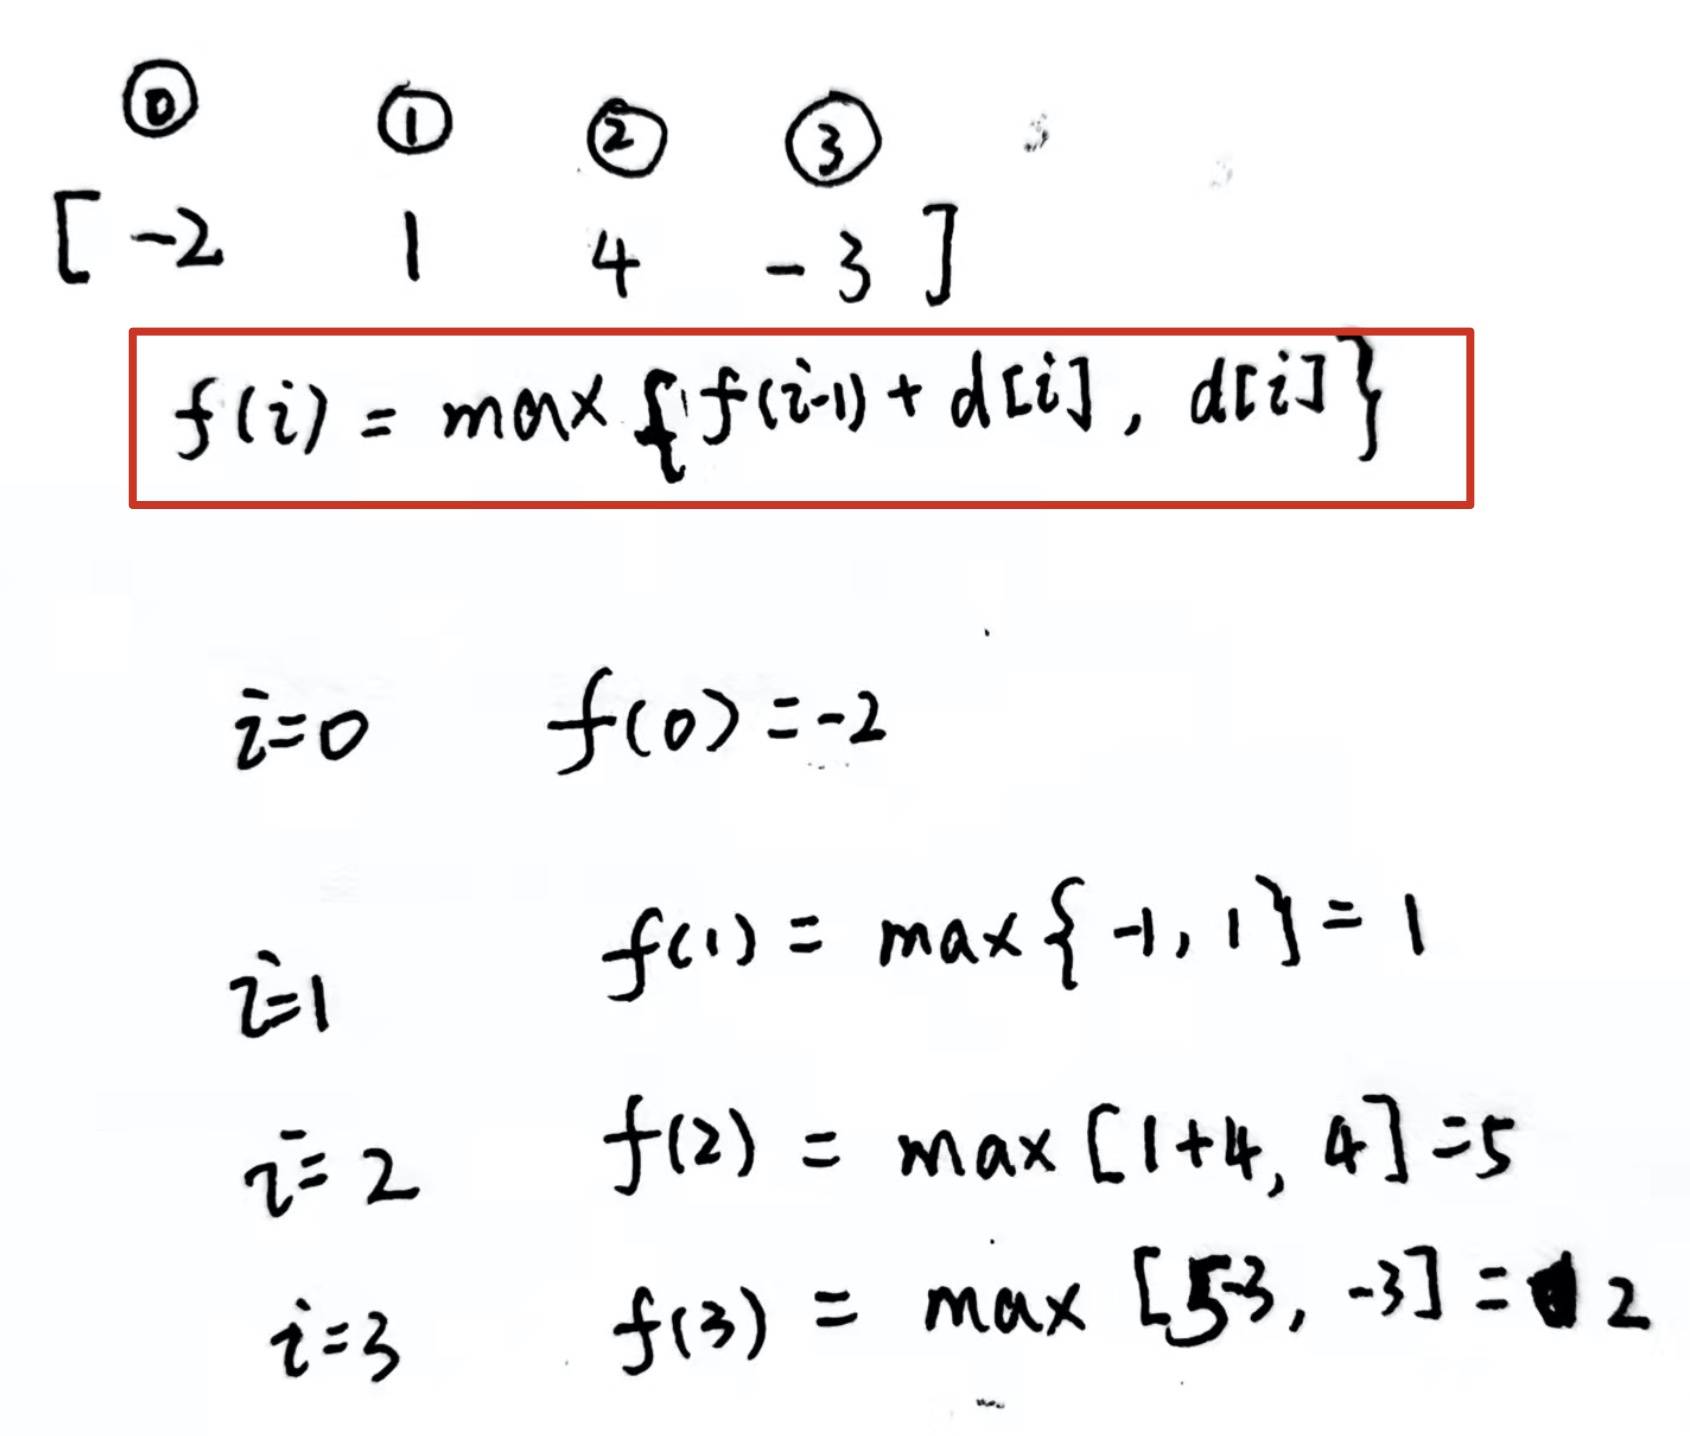 ⓪ ① ② ③
[ -2 1 4 -3 ]
f(i) = max { f(i-1) + d[i] , d[i] }
i=0 f(0) = -2
i=1 f(1) = max { -1, 1 } = 1
i=2 f(2) = max [1+4, 4] = 5
i=3 f(3) = max [5-3, -3] = 2